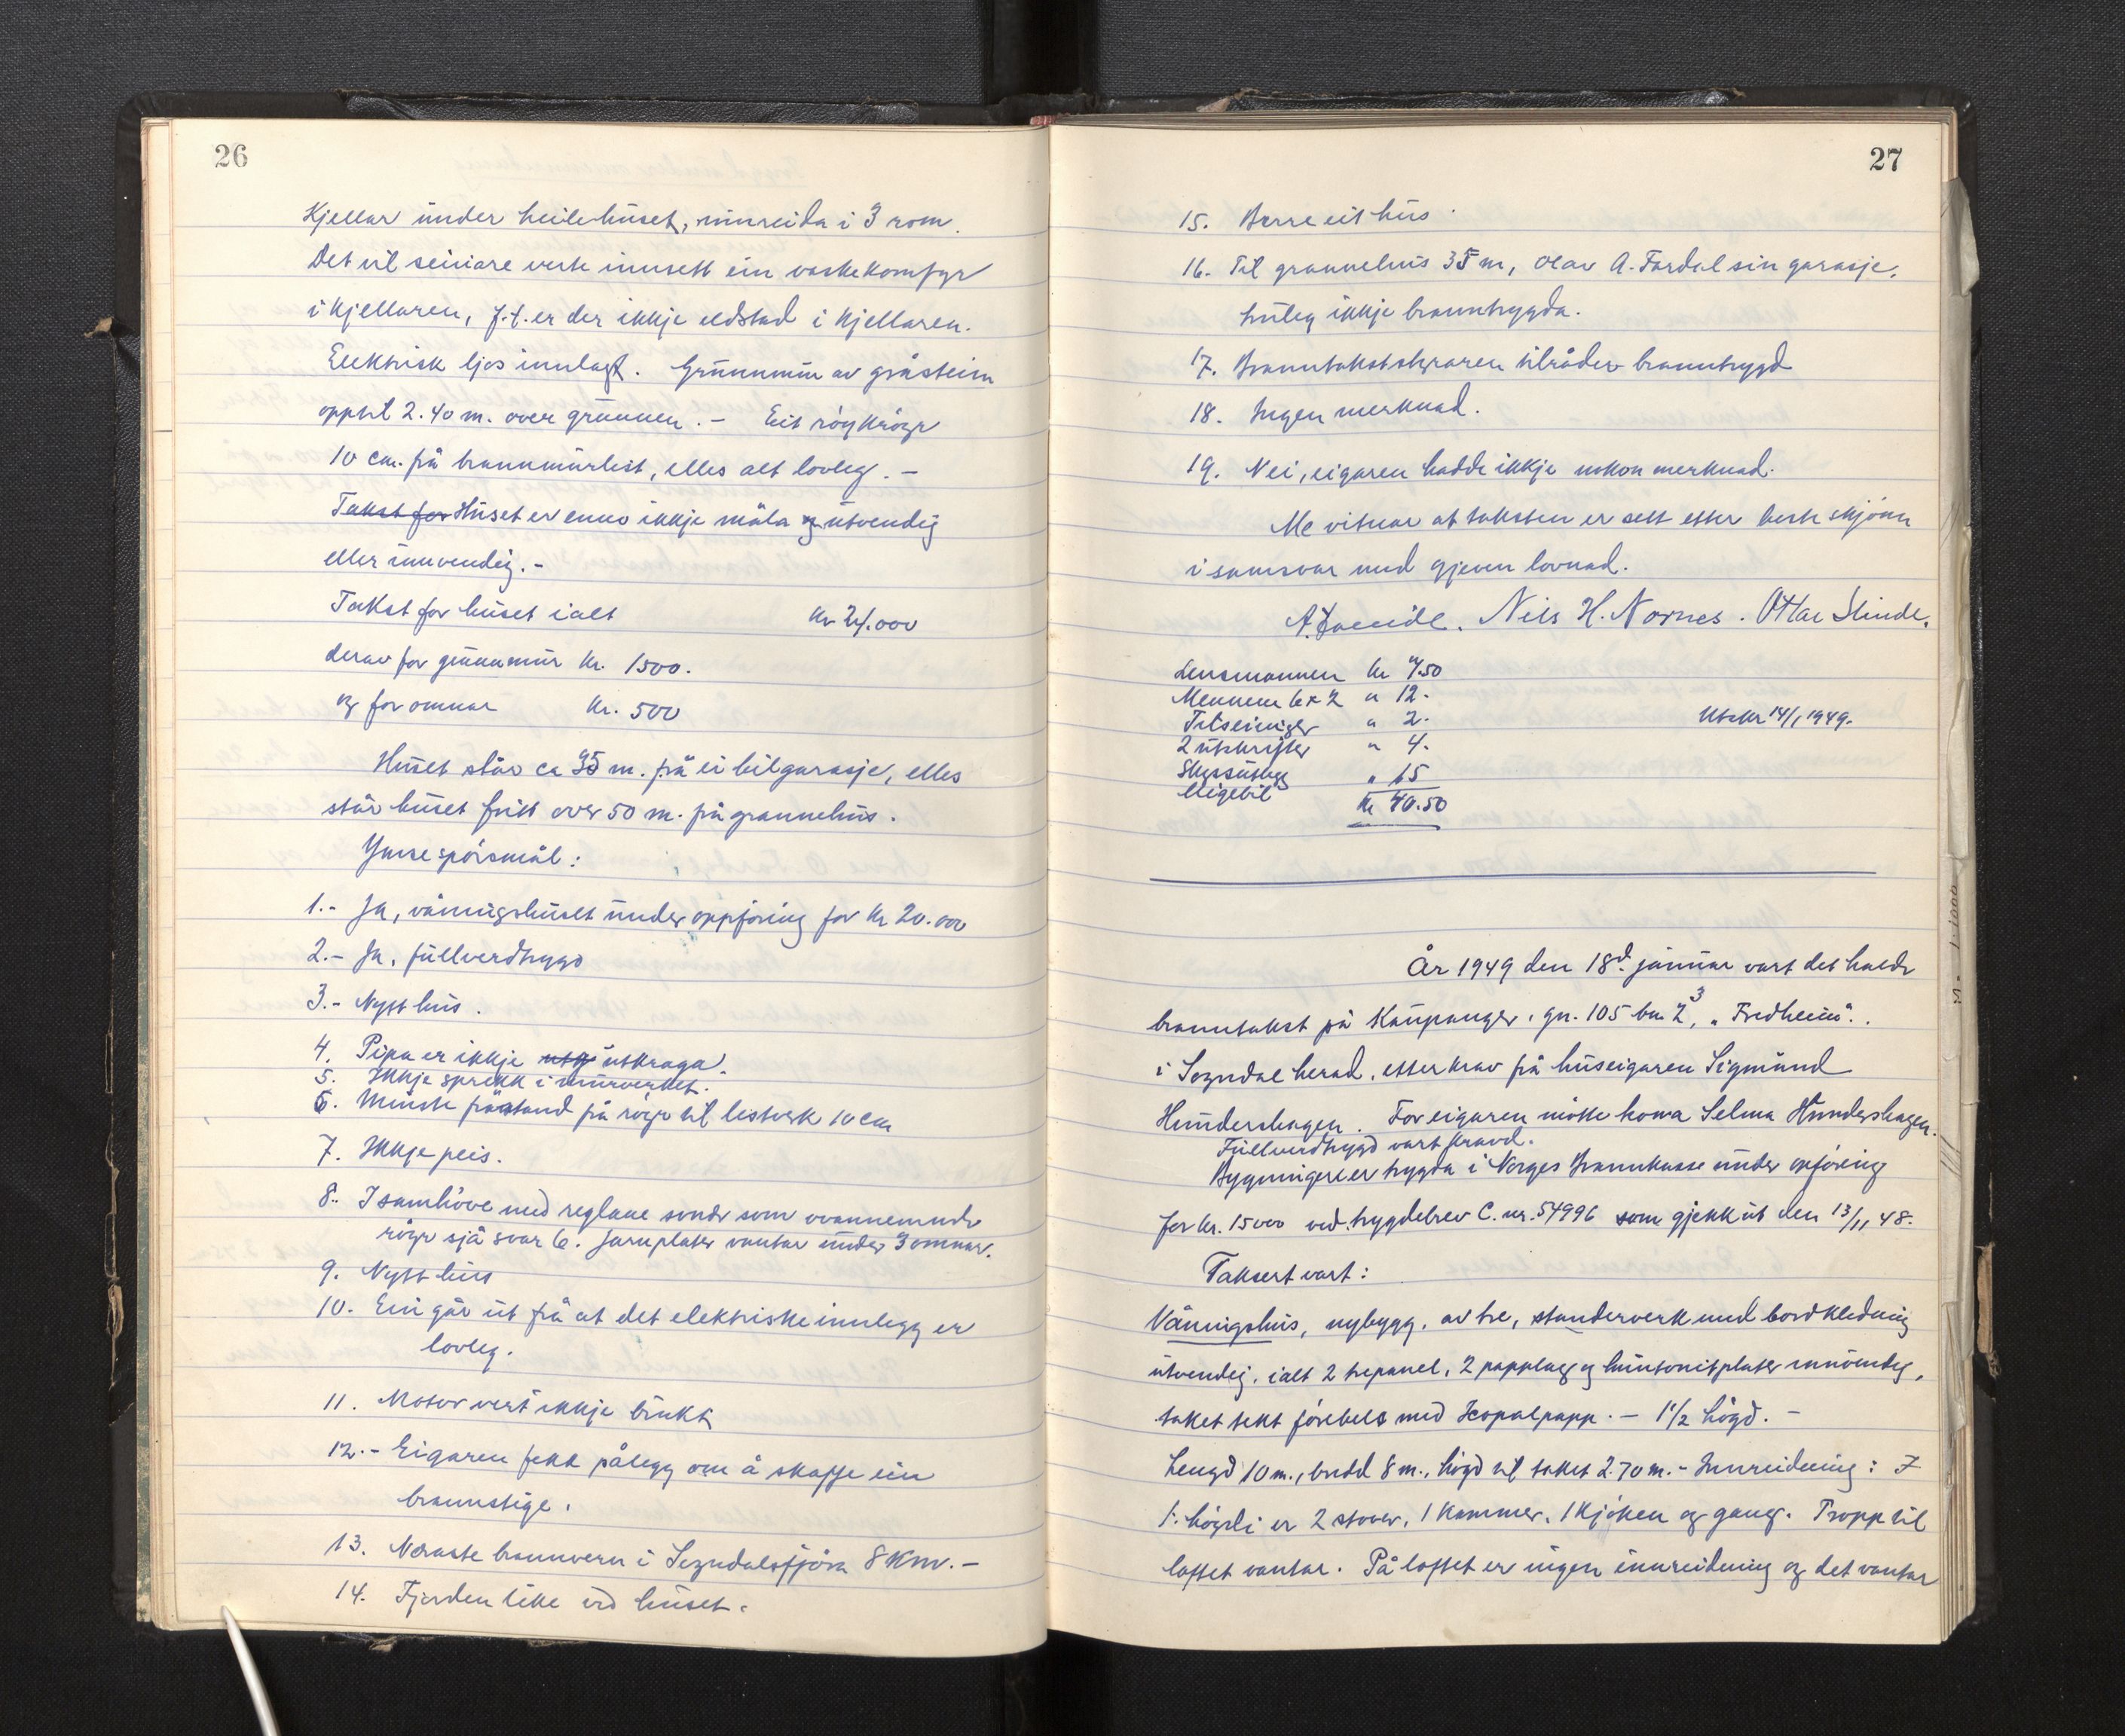 26
Kjellar under heile huset, innreida i 3 rom.
Det vil seinare verte innsett ein vaskekomfyr
i kjellaren, f.t. er der ikkje eldstad i kjellaren.
Elektrisk ljos innlagt. Grunnmur av gråstein
opptil 2.40 m. over grunnen. - Eit röykröyr
10 cm. frå brannmurlist, elles alt lovleg. -
Takst for Huset er enno ikkje måla utvendig
eller innvendig. -
Takst for huset ialt kr 24.000
derav for grunnmur kr. 1500.
og for omnar kr. 500
Huset står ca 35 m. frå ei bilgarasje, elles
står huset fritt over 50 m. frå grannehus.
Ymse spörsmål:
1.- Ja, våningshuset under oppföring for kr 20.000
2.- Ja, fullverdtrygd
3.- Nytt hus.
4. Pipa er ikkje utk utkraga.
5. Ikkje sprekk i murverket.
6. Minste fråstand frå röyr til listverk 10 cm
7. Ikkje peis.
8. I samhöve med reglane sondr som ovannemnde
röyr sjå svar 6. Jarnplater vantar under 3 omnar.
9. Nytt hus
10. Ein går ut frå at det elektriske innlegg er
lovleg.
11. Motor vert ikkje brukt
12.- Eigaren fekk pålegg om å skaffe ein
brannstige.
13. Næraste brannvern i Sogndalsfjöra 8 km. -
14. Fjorden like ved huset.
27
15. Berre eit hus.
16. Til grannehus 35 m, Olav A. Fardal sin garasje,
truleg ikkje branntrygda.
17. Branntakstskjøraren tilråder branntrygd
18. Ingen merknad.
19. Nei, eigaren hadde ikkje nokon merknad.
Me vitnar at taksten er sett etter beste skjönn
i samsvar med gjeven lovnad.
Nils H. Nornes. Ottar Slinde.
Lensmannen kr 7.50
Mennene 6 x 2 " 12.
Tilseiingar " 2.
2 utskrifter " 4.
Skyssutlegg " 15
Eigebil kr 40.50
Utskr 14/1 1949.
År 1949 den 18d januar vart det halde
branntakst på Kaupanger, gn. 105 bn 2 3, "Fredheim".
i Sogndal herad, etter krav frå huseigaren Sigmund
Hundershagen. For eigaren mötte kona Selma Hundershagen.
Fullverdtrygd vart kravd.
Bygningen er trygda i Norges Brannkasse under opföring
for kr. 15000 ved trygdebrev C. nr. 54996 som gjekk ut den 13/11 48.
Taksert vart:
Våningshus, nybygg, av tre, standerverk med bordkledning
utvendig, ialt 2 trepanel, 2 papplag og huntonitplater innvendig,
taket tekt förebels med Icopalpapp. - 1 1/2 högd. -
Lengd 10 m., breidd 8 m., högd til taket 2.70 m. - Innreidning: I
1. högdi er 2 stover, 1 kammer, 1 kjöken og gang. Tropp til
loftet vantar. På loftet er ingen innreidning og det vantar